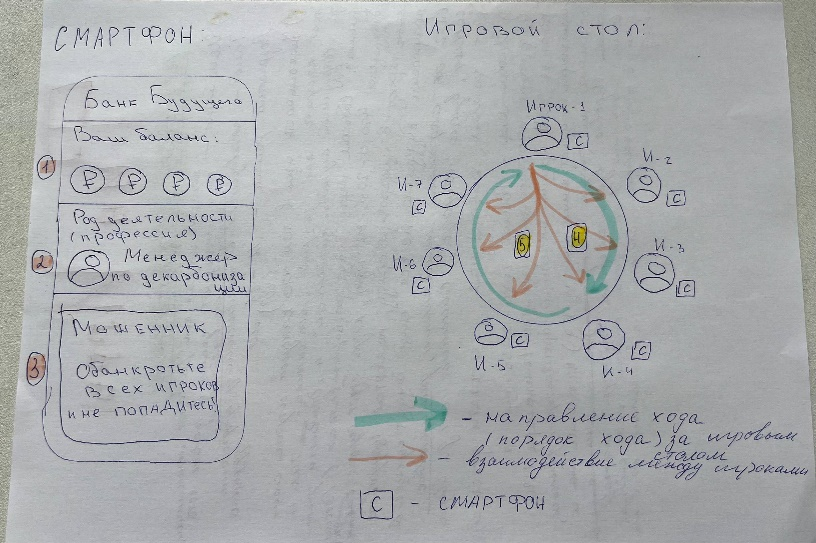 СМАРТФОН:
Банк Будущего
Ваш баланс:
1
₽ ₽ ₽ ₽
Род деятельности
(профессия)
2
Менеджер
по декарбониза
ции
3
Мошенник
Обанкротьте
всех игроков
и не попадитесь!
Игровой стол:
Игрок-1
С
И-2
С
И-3
С
И-4
С
И-5
С
И-6
С
И-7
С
5
4
- направление хода
(порядок хода) за игровым
столом
- взаимодействие между игроками
С - СМАРТФОН